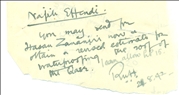 Najib Effendi.
You may send for
Hasan Zananiri now &
obtain a revised estimate for
waterproofing the roof of
the Class.